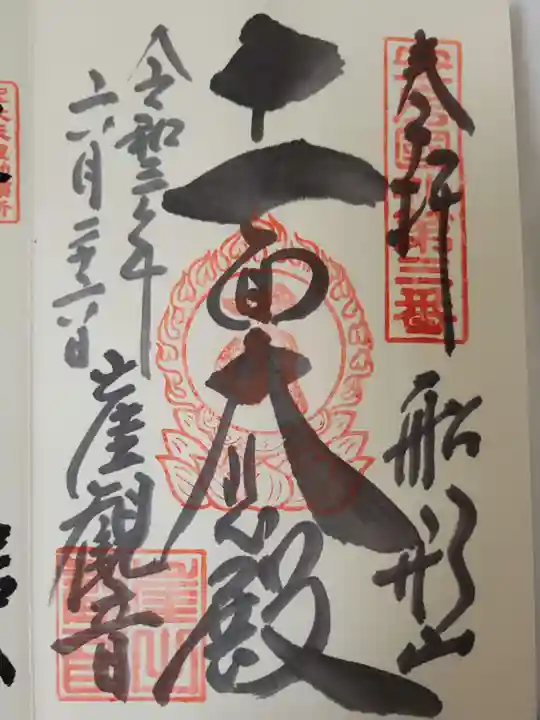 奉拝
安房國札第三番
船形山
十一面大悲殿
令和二年
六月二十六日
崖觀音